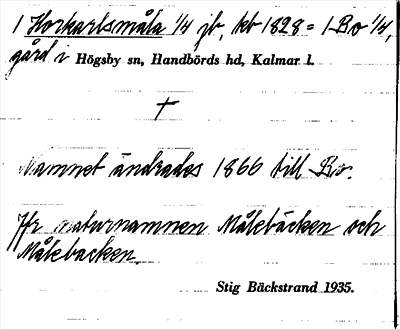 1 Horkarlsmåla 1/4 jb, kb 1828 = 1 Bo 1/4,
gård i Högsby sn, Handbörds hd, Kalmar l.
†
Namnet ändrades 1866 till Bo.
Jfr naturnamnen Målebäcken och
Målebacken.
Stig Bäckstrand 1935.